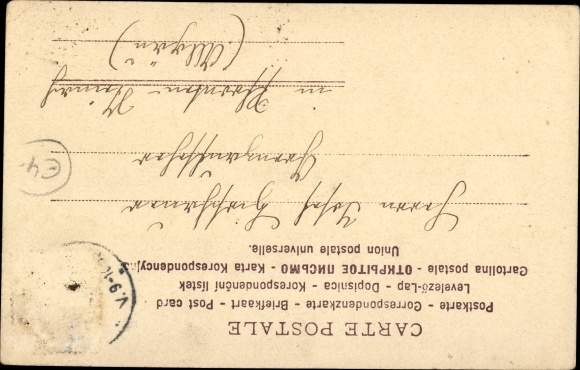 CARTE POSTALE
Postkarte - Correspondenzkarte - Briefkaart - Post card
Levelező-Lap - Dopisnica - Korespondenční lístek
Cartolina postale - ОТКРЫТОЕ ПИСЬМО - Karta Korespondencyjna
Union postale universelle.
Herrn Josef
in Pfronten-
(Allgäu)
V.9-10